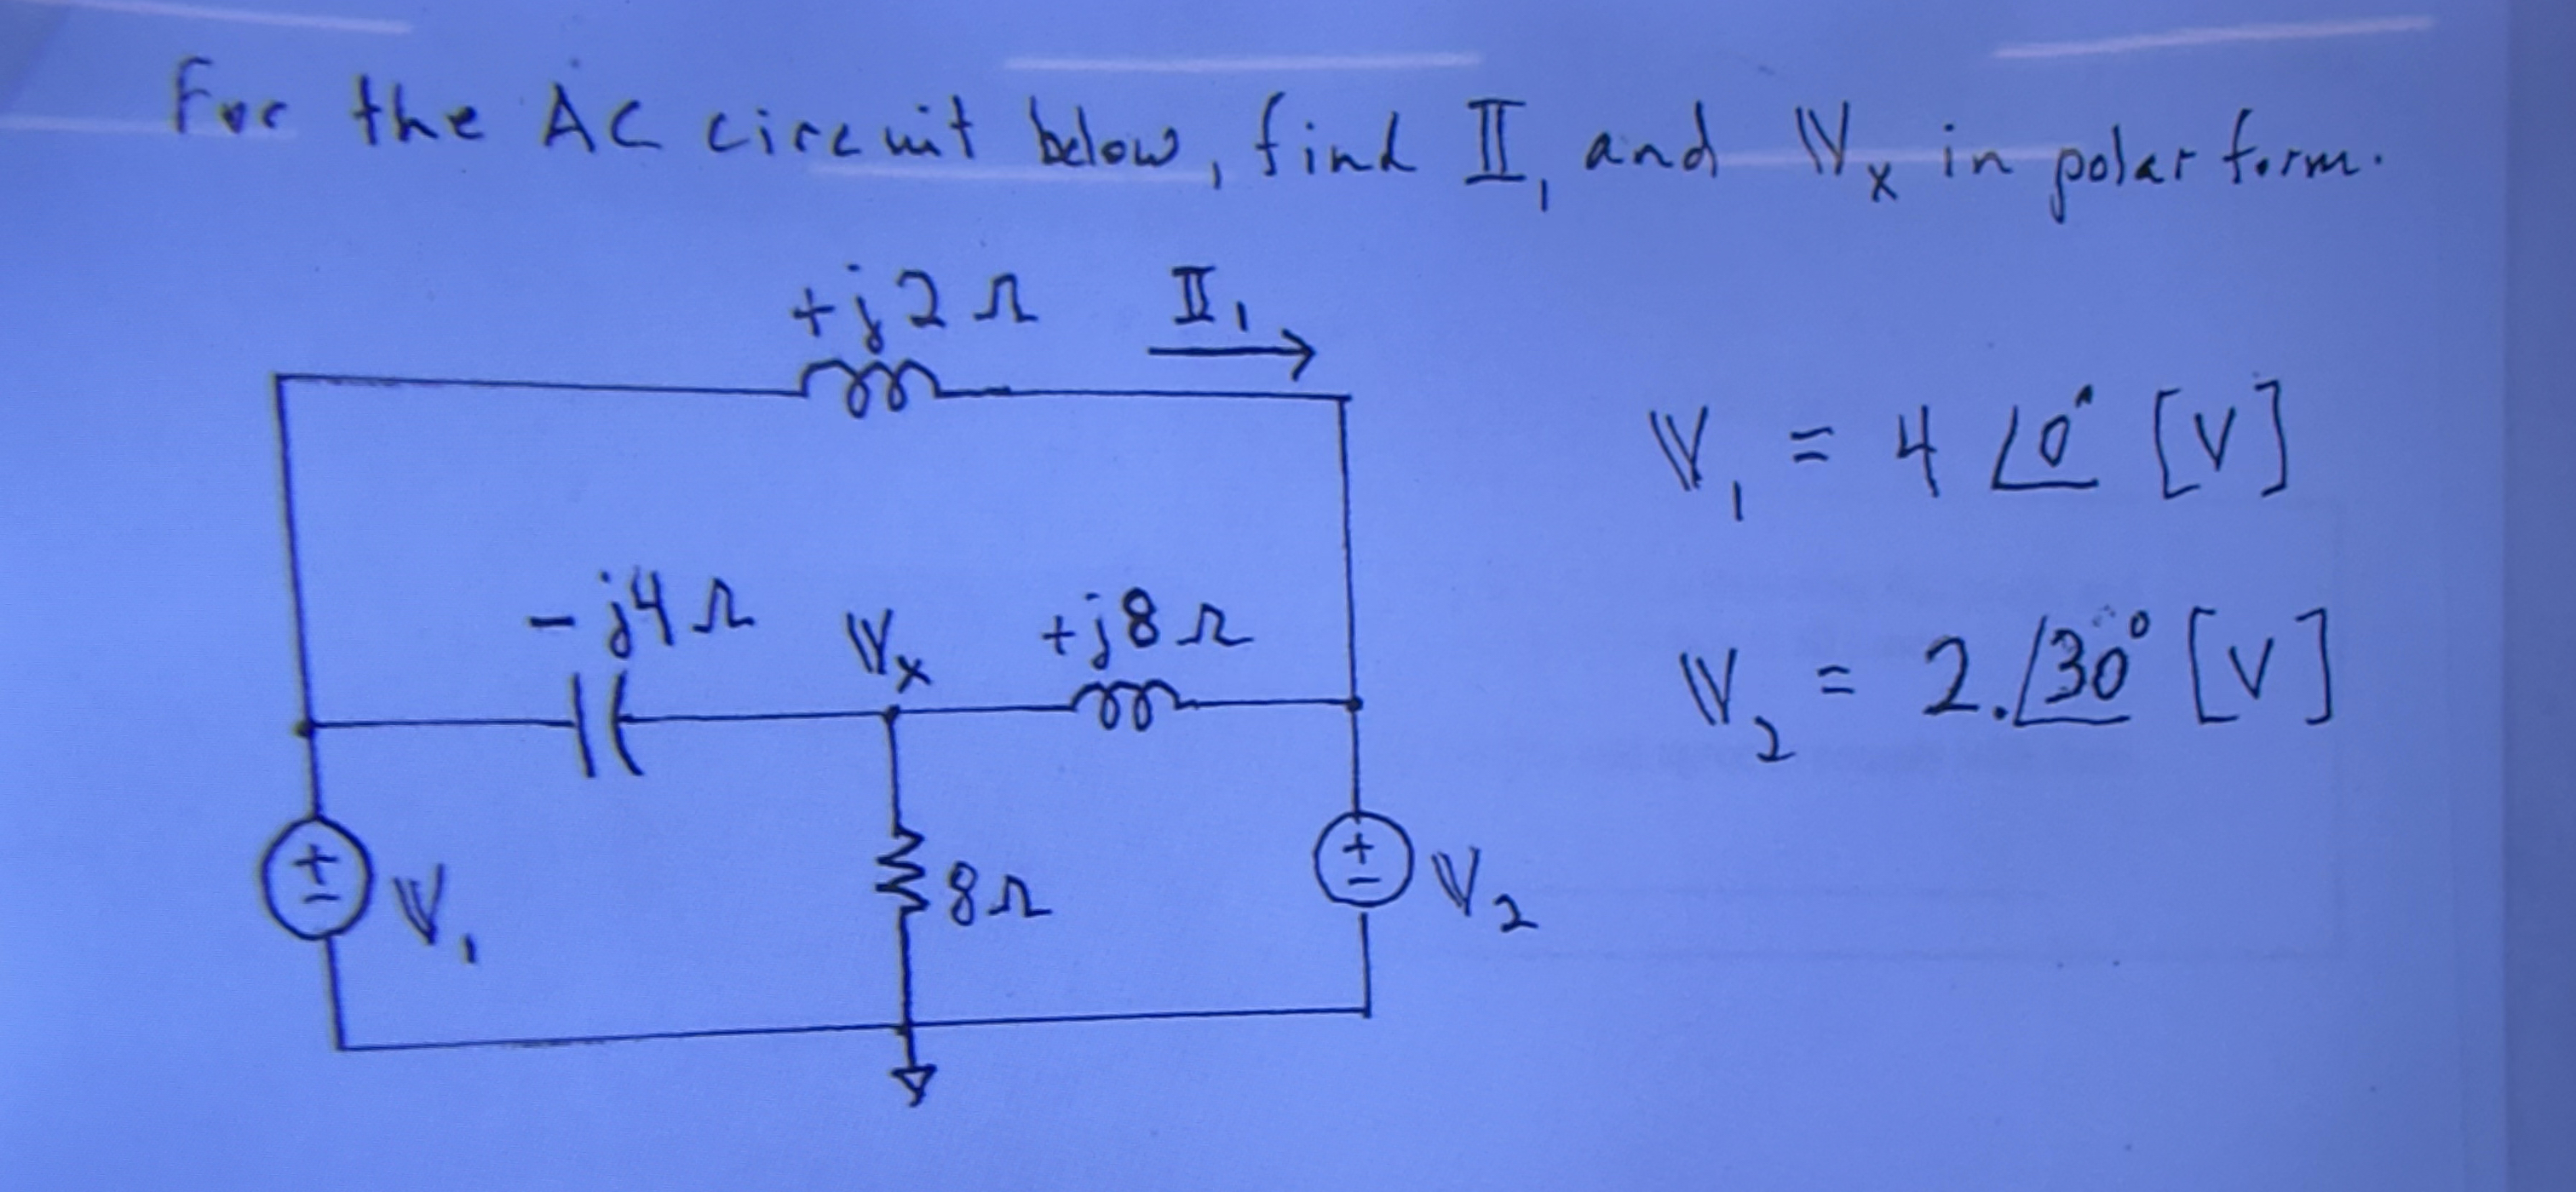 For the AC circuit below, find 𝕀₁ and 𝕍ₓ in polar form.
+j2 Ω
𝕀₁
𝕍₁ = 4 ∠0° [V]
-j4 Ω
𝕍ₓ
+j8 Ω
𝕍₂ = 2.∠30° [V]
+
-
𝕍₁
8Ω
+
-
𝕍₂